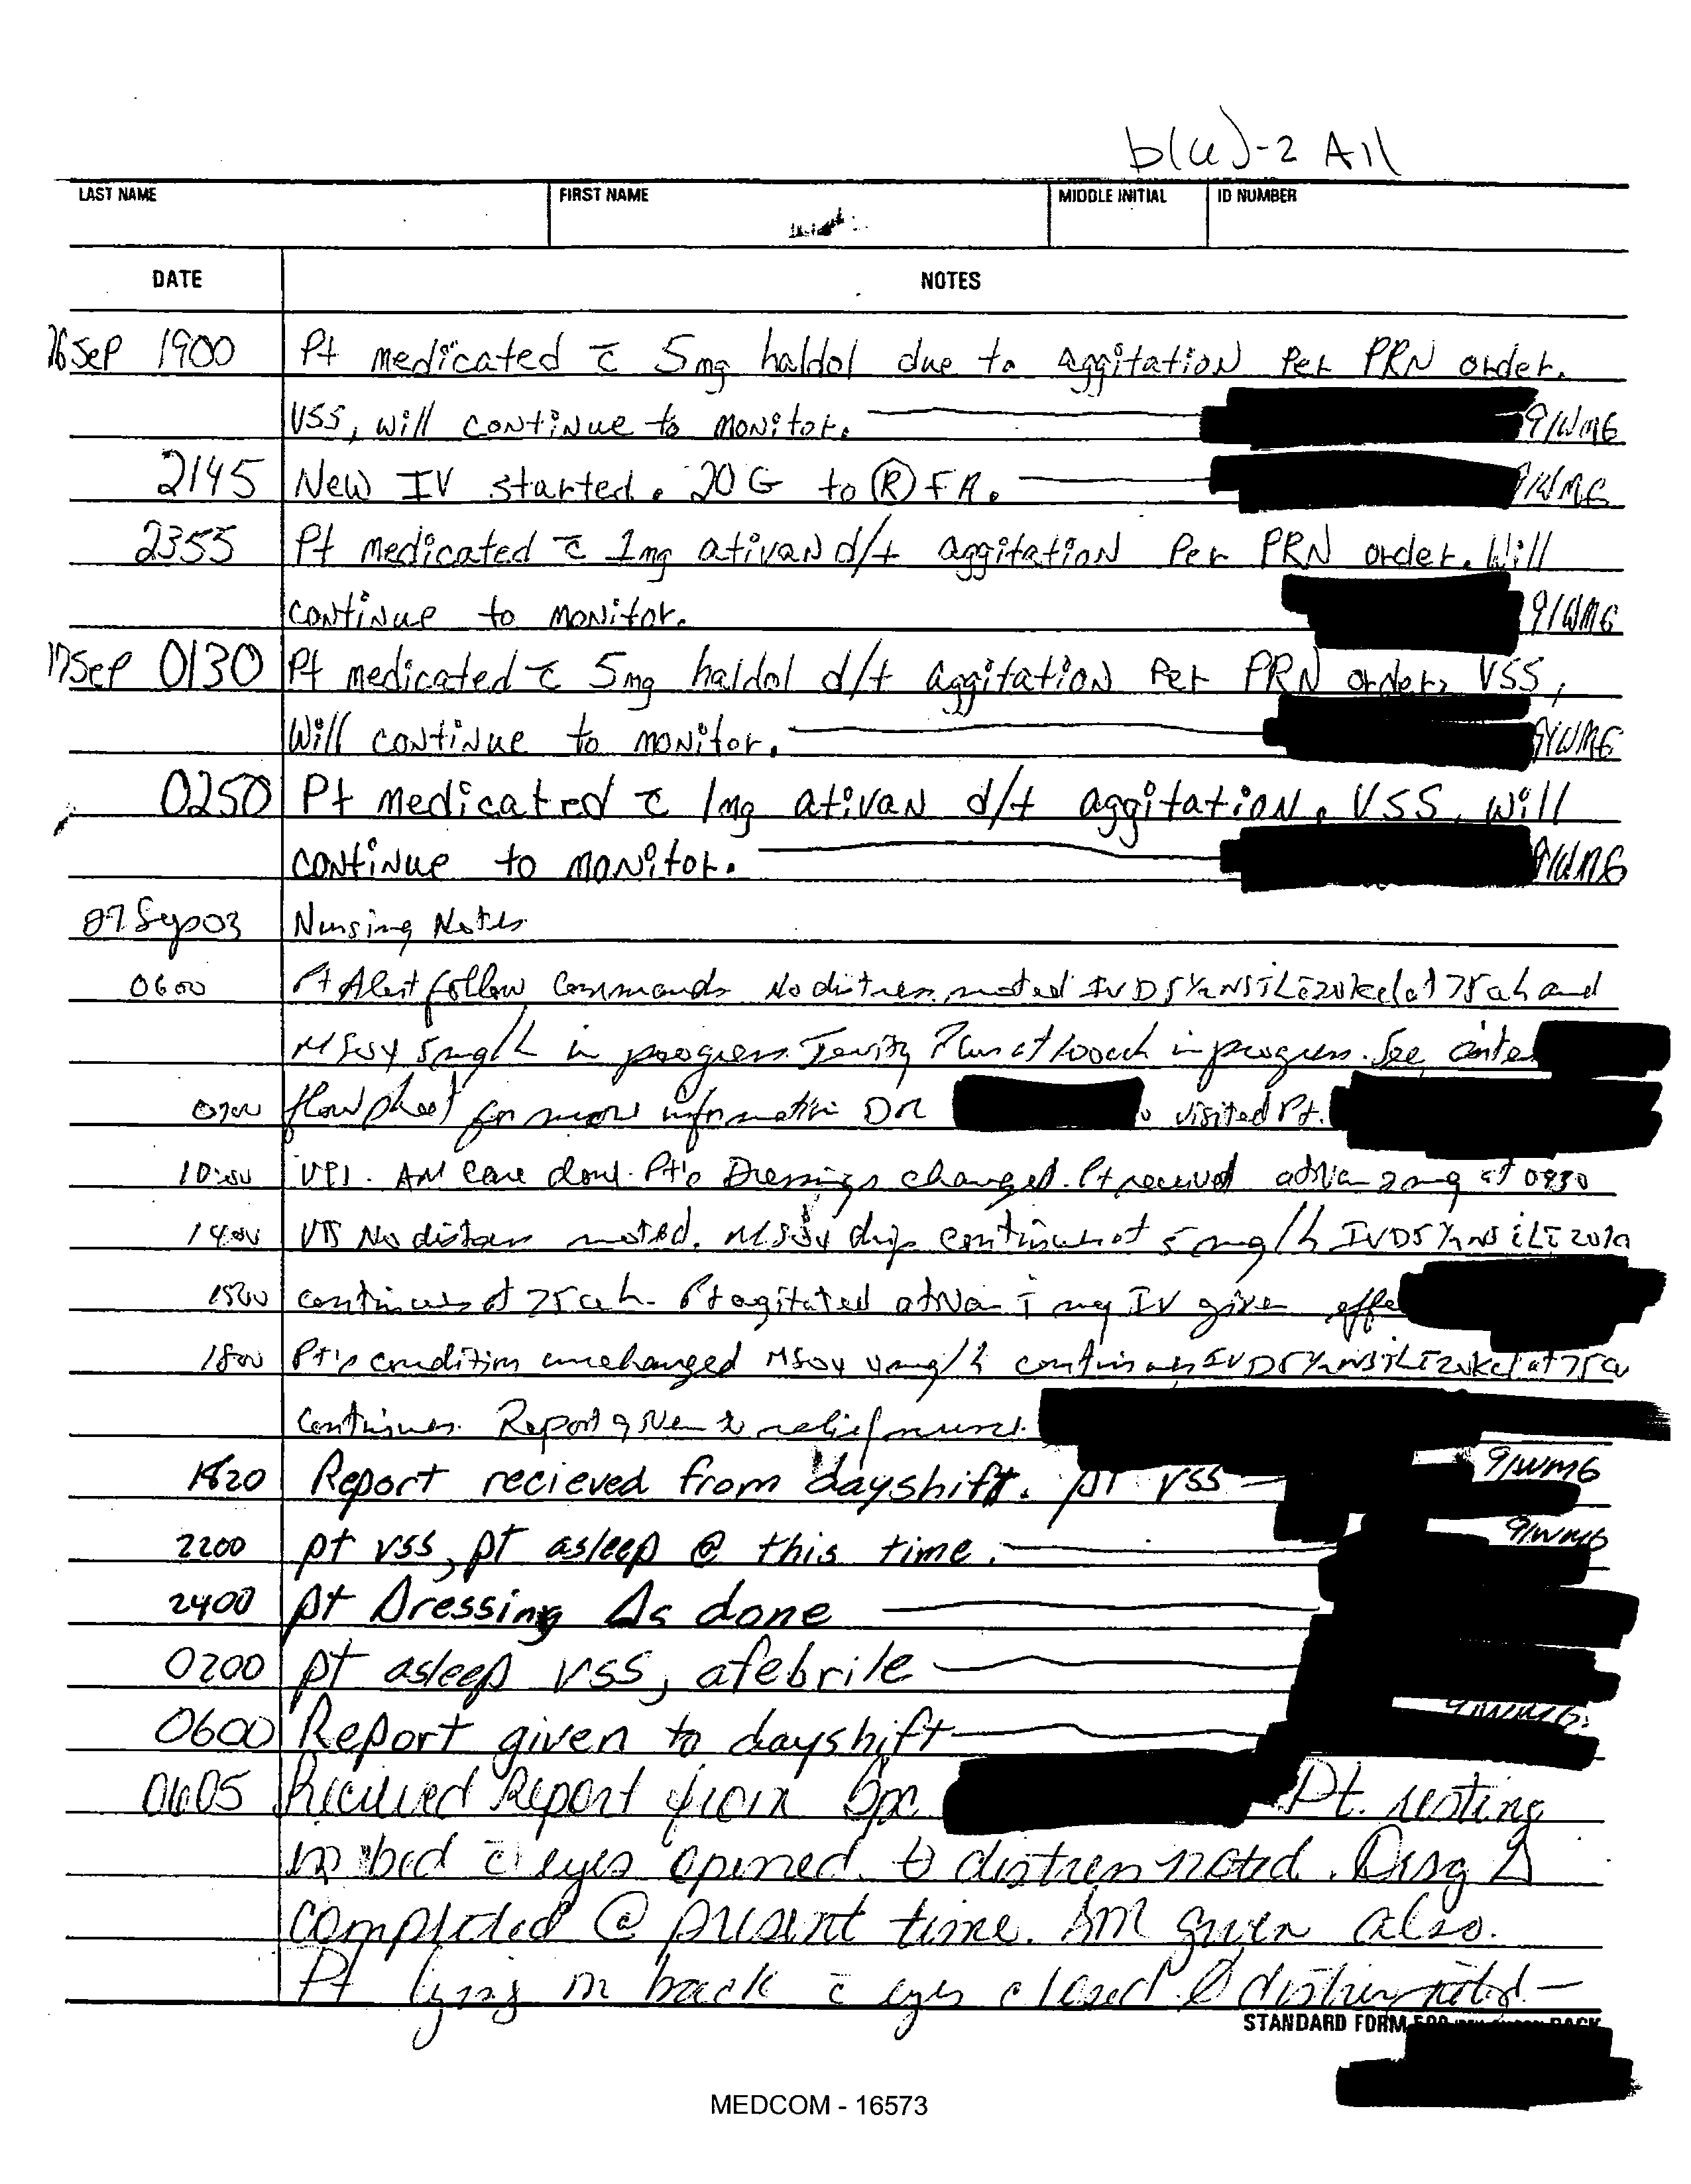 b(6)-2 All
LAST NAME FIRST NAME MIDDLE INITIAL ID NUMBER
DATE NOTES
16 Sep 1900 Pt medicated c̄ 5mg haldol due to aggitation Per PRN order.
VSS, will continue to monitor. 91WM6
2145 New IV started. 20G to Ⓡ FA. 91WM6
2355 Pt medicated c̄ 1mg ativan d/t aggitation Per PRN order. Will
continue to monitor. 91WM6
17 Sep 0130 Pt medicated c̄ 5mg haldol d/t aggitation Per PRN order, VSS,
Will continue to monitor. 91WM6
0250 Pt medicated c̄ 1mg ativan d/t aggitation. VSS, will
continue to monitor. 91WM6
Sep 03 Nursing Notes
0600 Pt Alert follow Commands No distress noted IVD5½NS at 75 and
MSO4 5mg/h in progress. Plus at in progress. See
flow sheet for more information DR visited Pt.
10:00 AM Care done. Pt's Dressings changed. Pt received ativan 2mg at 0930
1400 No distress noted. MSO4 drip continues at 5 mg/h IVD5½NS
1500 continues at 75 Pt agitated ativan mg IV given
1800 Pt's condition unchanged MSO4 4mg/h continues IVD5½NS at 75
continues. Report given to relief nurse.
1820 Report recieved from dayshift. pt VSS 91WM6
2200 pt VSS, pt asleep @ this time. 91WM6
2400 pt Dressing Δs done
0200 pt asleep VSS, afebrile
0600 Report given to dayshift 91WM6
0605 Received Report from Spc Pt. resting
in bed c̄ eyes opened. Ø distress noted. Drsg Δ
completed @ present time. given also.
Pt lying on back c̄ eyes closed Ø distress noted
STANDARD FORM BACK
MEDCOM - 16573